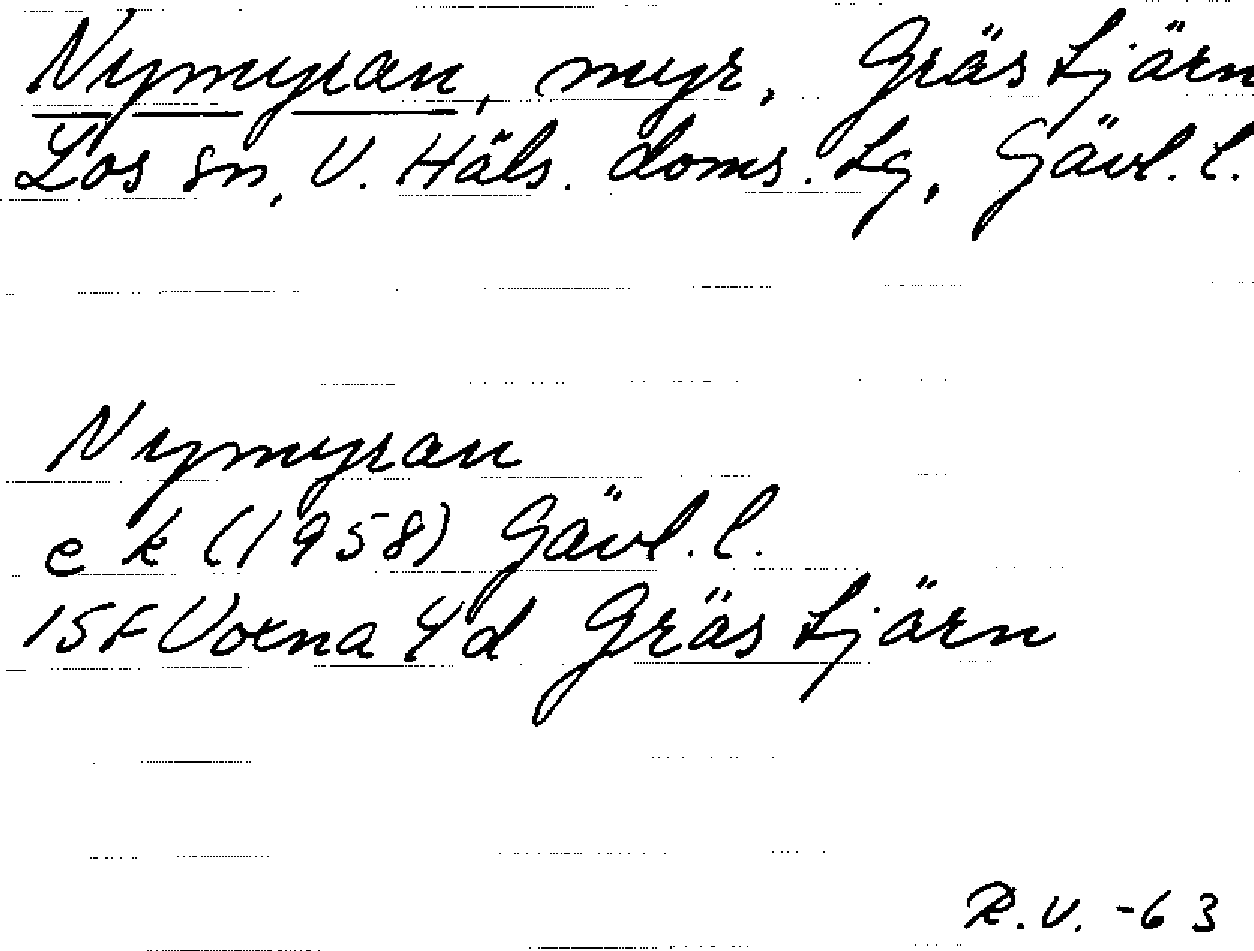 Nymyran, myr, Grästjärn
Los sn, V. Häls. doms.tg, Gävl. l.
Nymyran
e k (1958) Gävl. l.
15F Voxna 4d Grästjärn
R.V. -63